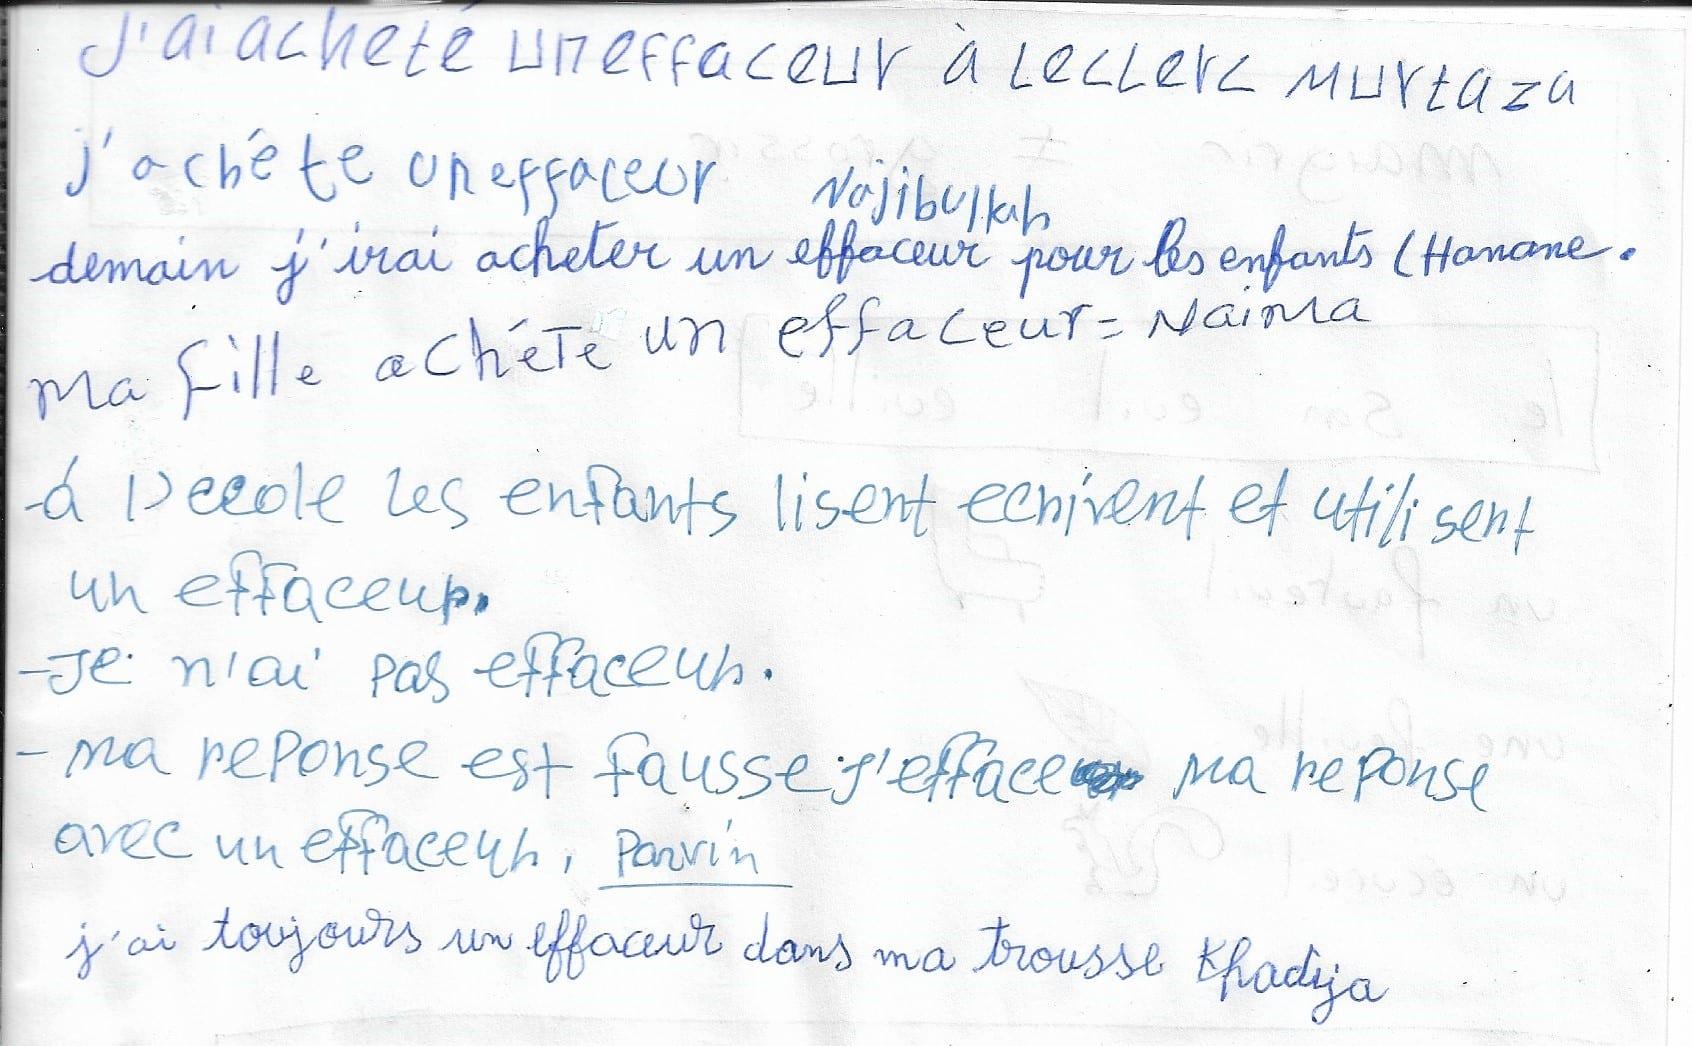 J'ai acheté un effaceur à Leclerc Murtaza
j'achéte un effaceur Najibullah
demain j'irai acheter un effaceur pour les enfants (Hanane.
Ma fille achéte un effaceur = Naima
-á l'ecole les enfants lisent ecrivent et utilisent
un effaceur.
-Je n'ai pas effaceur.
- ma reponse est fausse j'efface ma reponse
avec un effaceur, Parvin
j'ai toujours un effaceur dans ma trousse Khadija